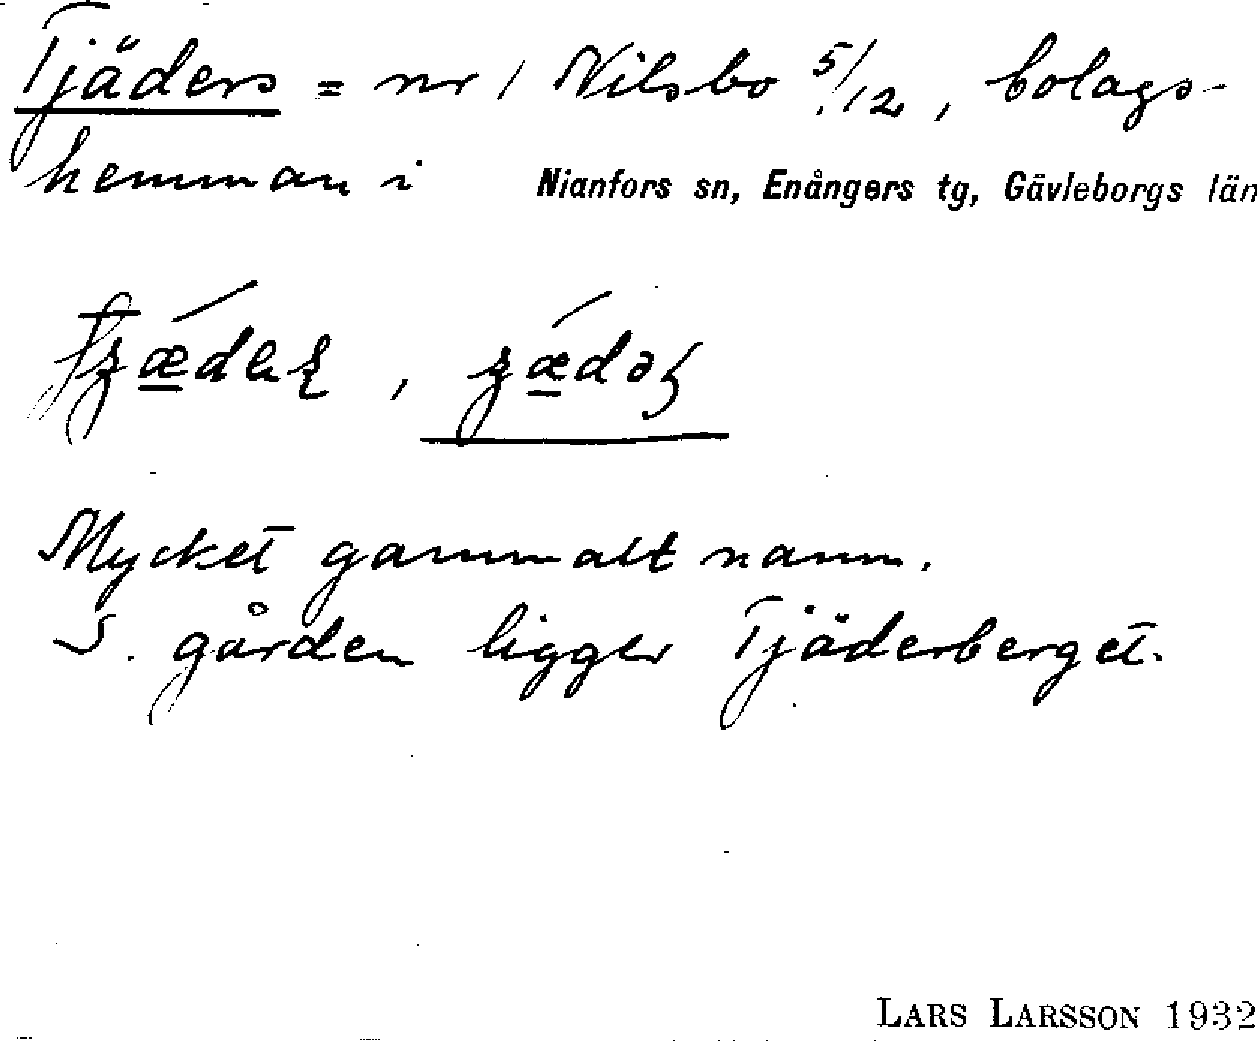 Tjäders = nr 1 Nilsbo 5/12, bolags-
hemman i Nianfors sn, Enångers tg, Gävleborgs län
Mycket gammalt namn.
S. gården ligger Tjäderberget.
LARS LARSSON 1932